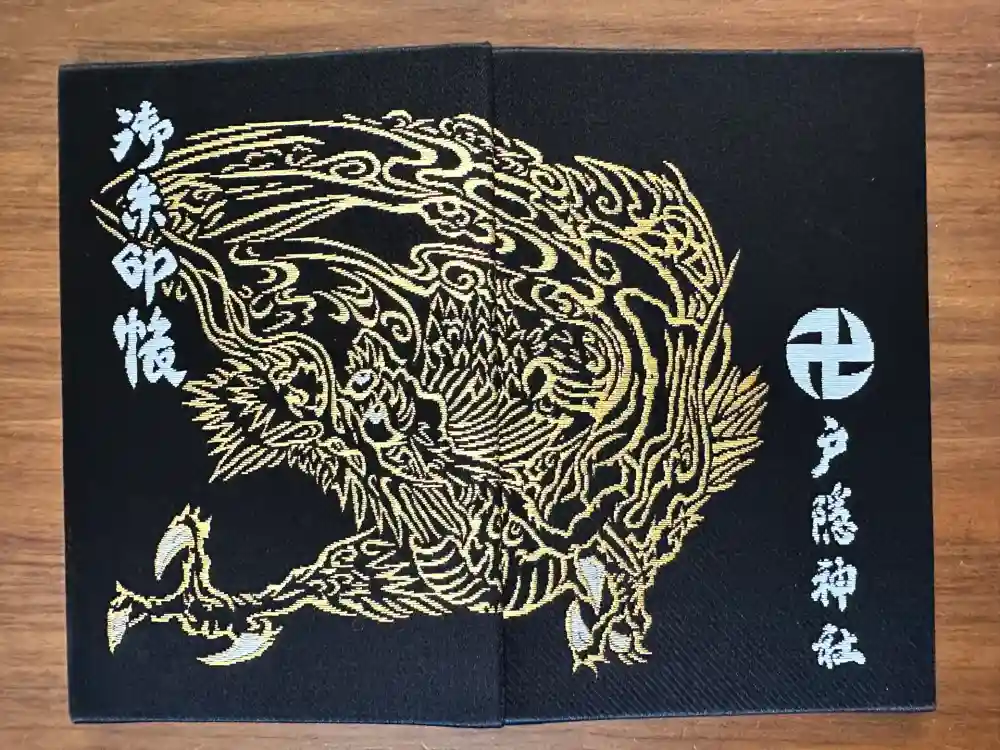 御朱印帳
卍
戸隠神社